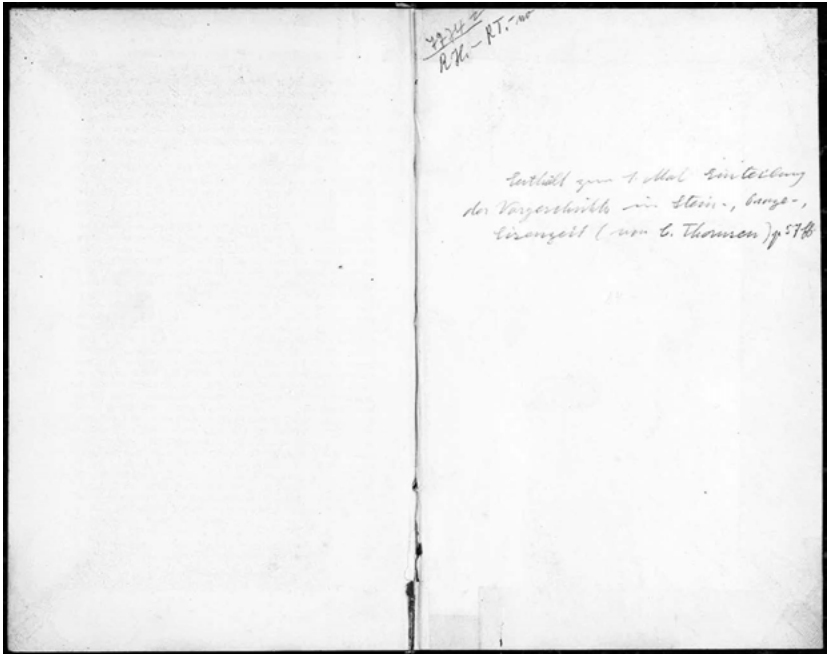 R.H. – RT. –
Enthält zum 1. Mal Einteilung
der Vorgeschichte in Stein-, Bronze-,
Eisenzeit (von C. Thomsen) p 57 ff